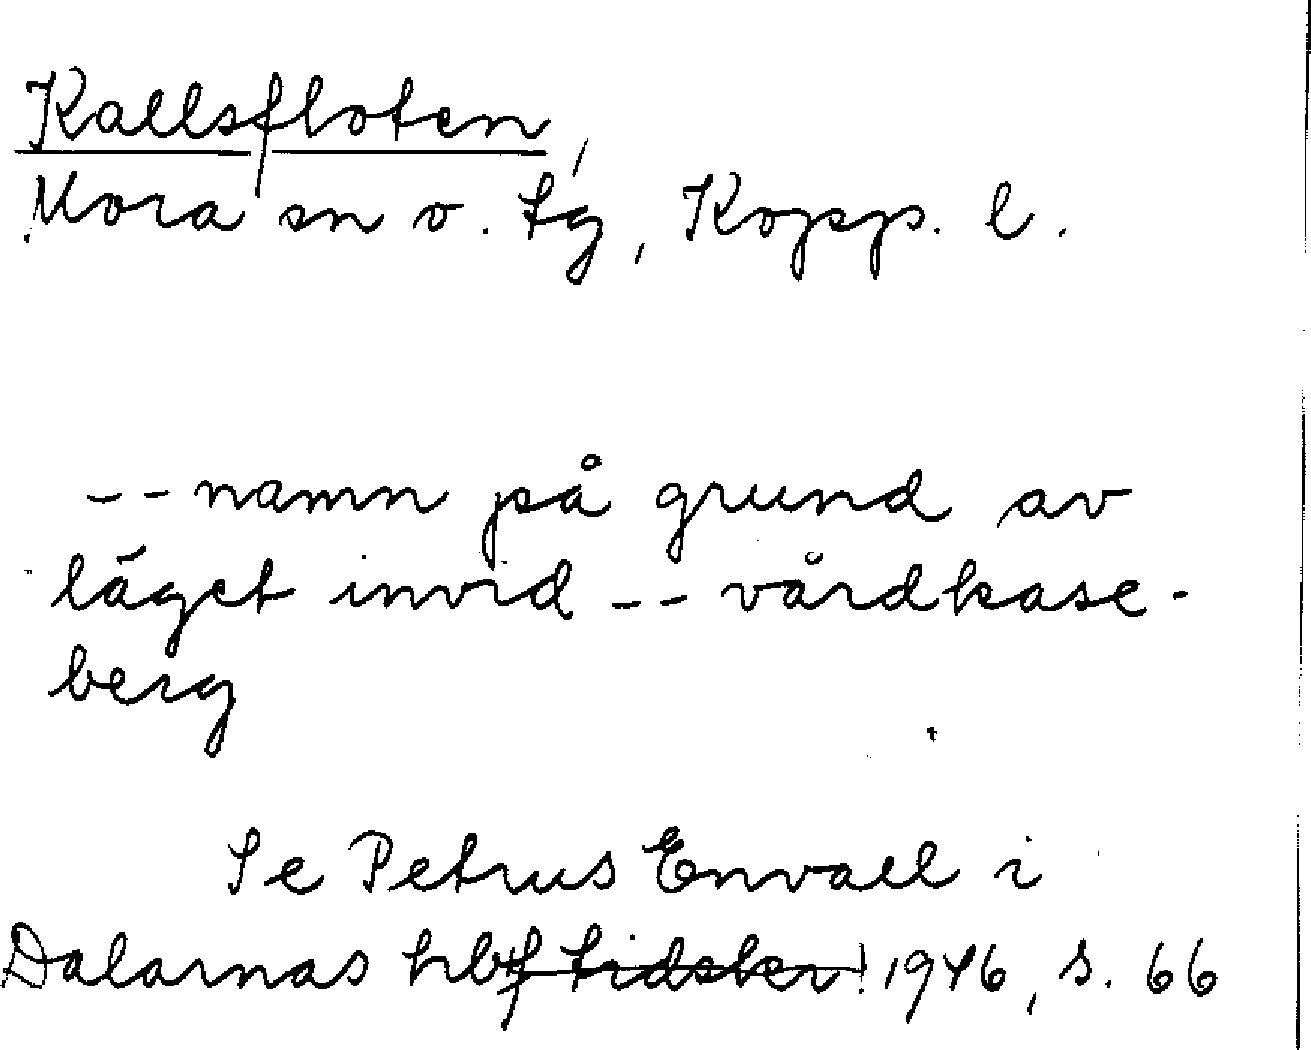 Kallsfloten,
Mora sn o. tg, Kopp. l.
-- namn på grund av
läget invid -- vårdkase-
berg
Se Petrus Envall i
Dalarnas hbf tidskr! 1946, s. 66